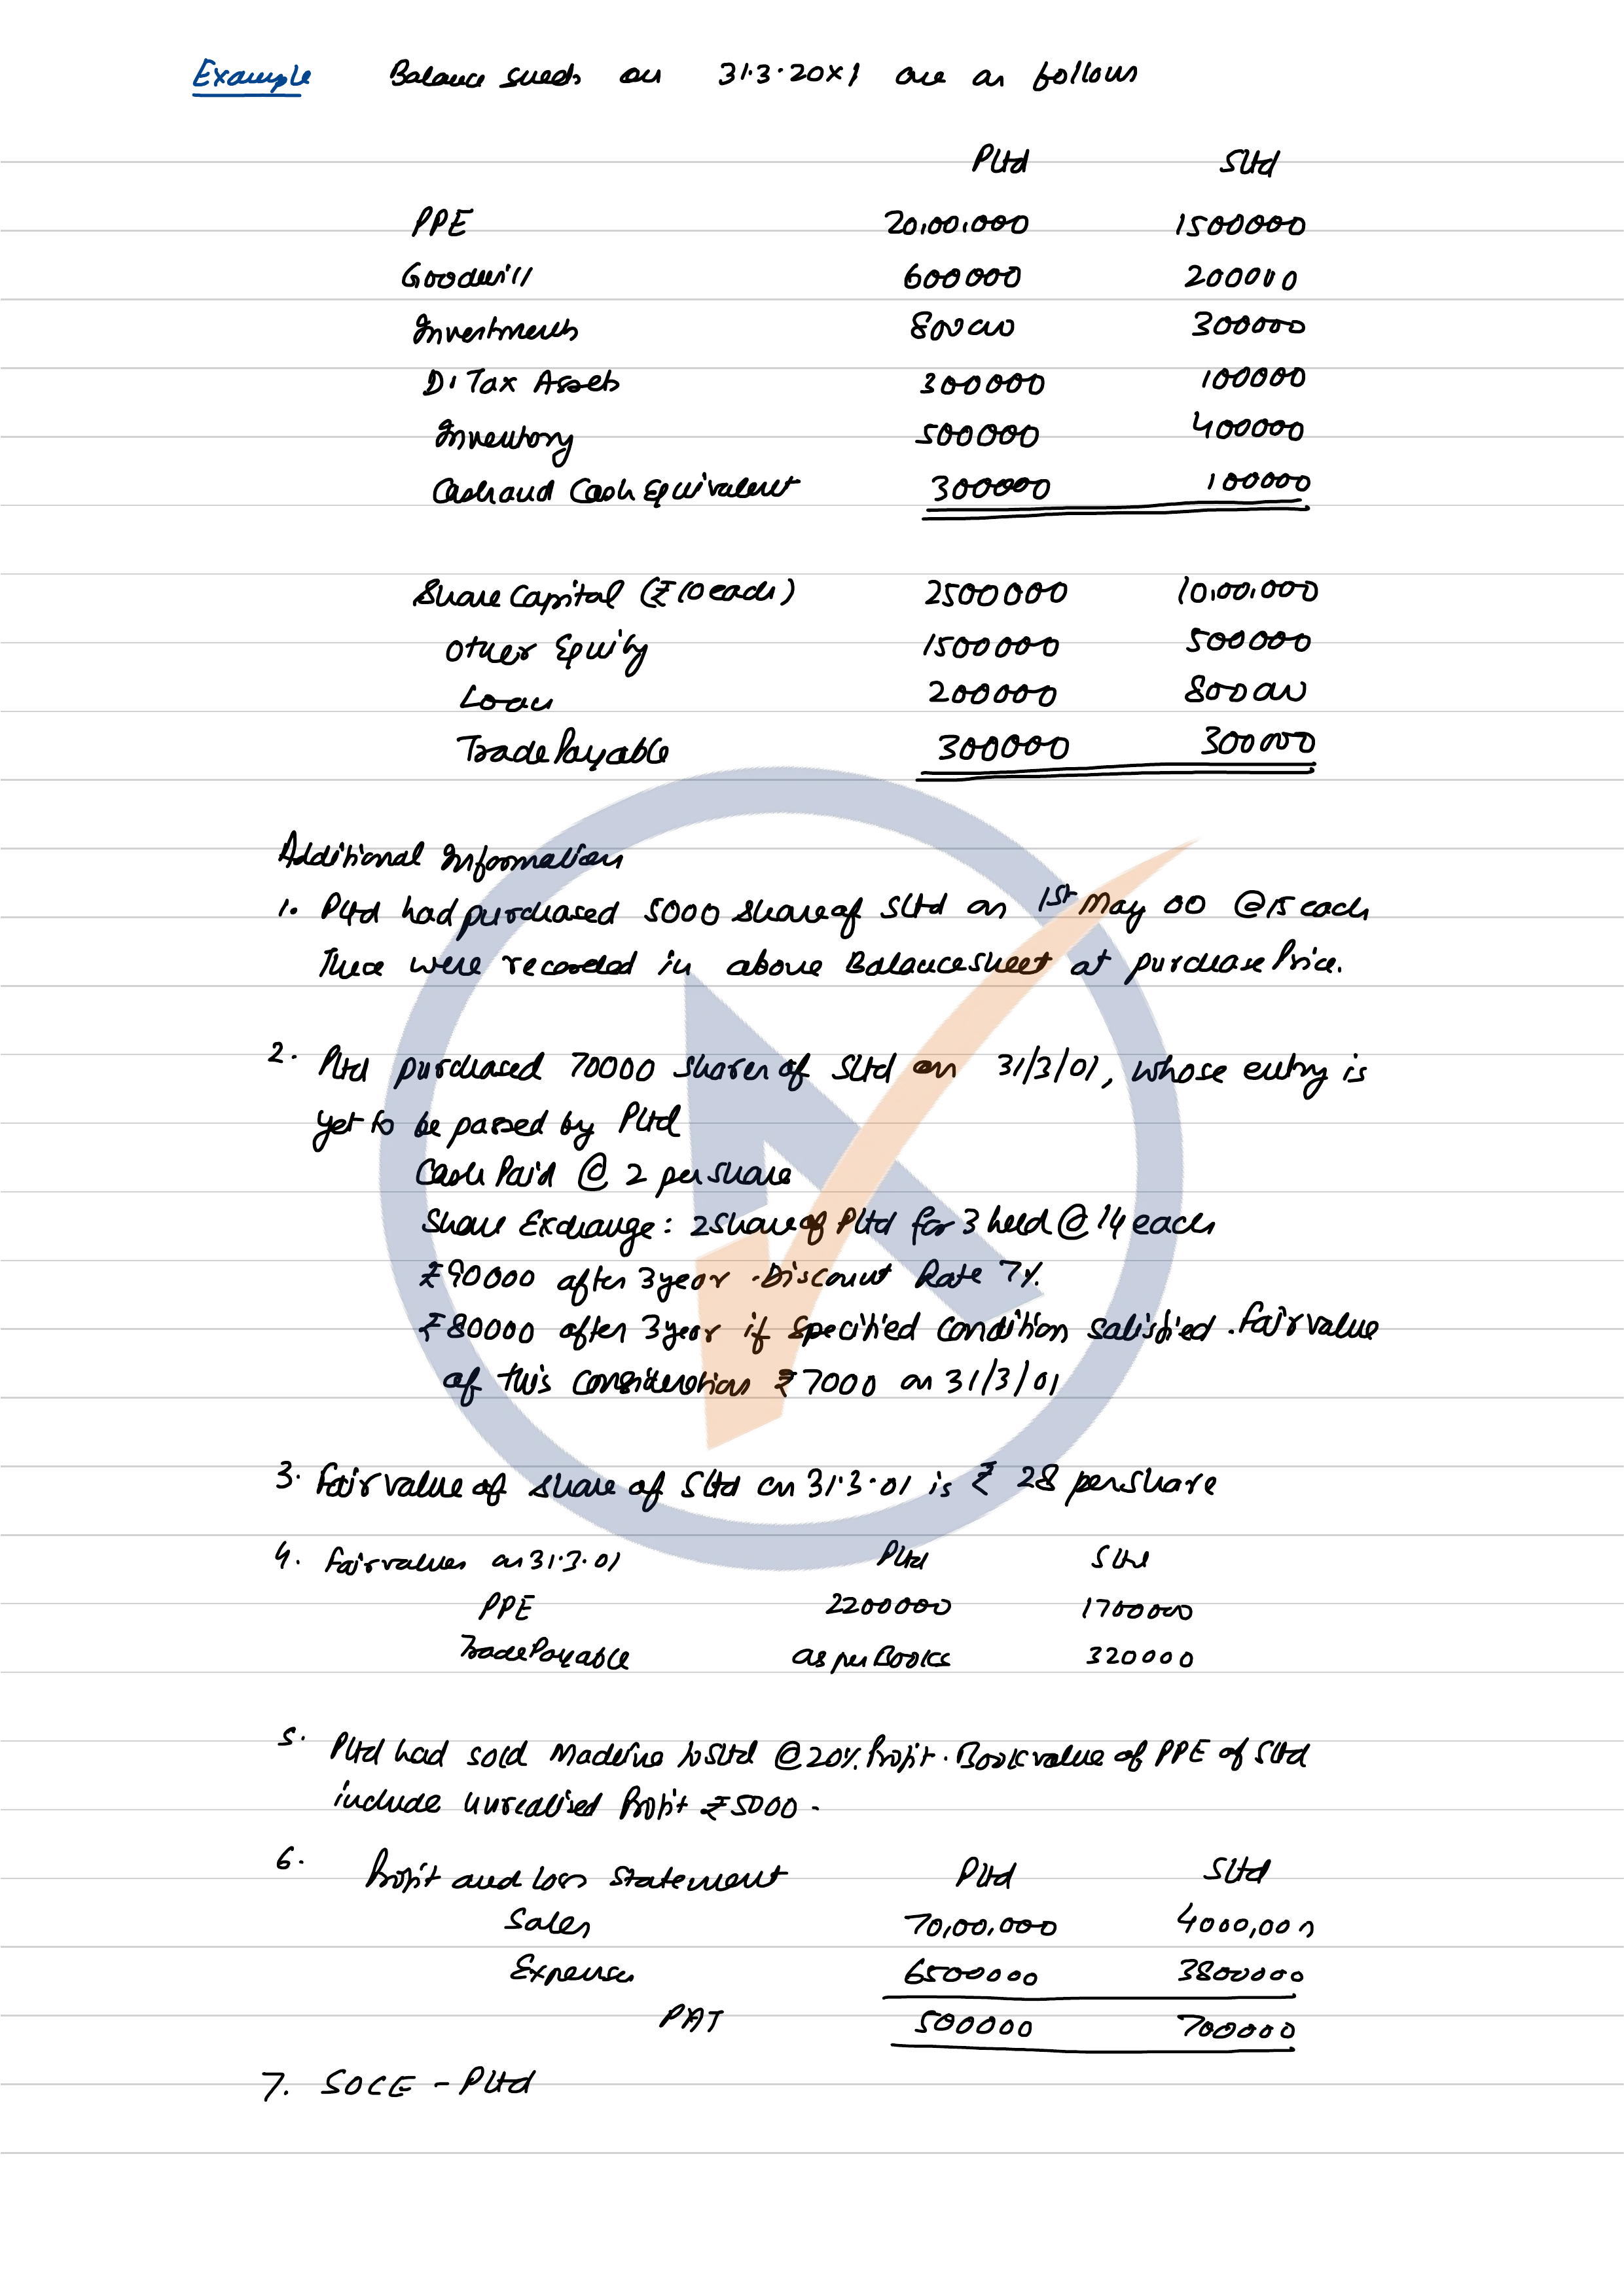 Example Balance sheets on 31.3.20x1 are as follows
PLtd SLtd
PPE 20,00,000 1500000
Goodwill 600000 200000
Investments 800000 300000
D. Tax Assets 300000 100000
Inventory 500000 400000
Cash and Cash Equivalent 300000 100000
Share Capital (₹10 each) 2500000 10,00,000
Other Equity 1500000 500000
Loan 200000 800000
Trade Payable 300000 300000
Additional Information
1. PLtd had purchased 5000 share of SLtd on 1st May 00 @15 each
These were recorded in above Balancesheet at purchase Price.
2. PLtd purchased 70000 shares of SLtd on 31/3/01, whose entry is
yet to be passed by PLtd
Cash Paid @ 2 per share
Share Exchange: 2 share of PLtd for 3 held @ 14 each
₹90000 after 3 year . Discount Rate 7%
₹80000 after 3 year if specified condition satisfied. Fair value
of this consideration ₹7000 on 31/3/01
3. Fair value of share of SLtd on 31.3.01 is ₹ 28 per share
4. Fair values on 31.3.01 PLtd SLtd
PPE 2200000 1700000
Trade Payable as per Books 320000
5. PLtd had sold Machine to SLtd @20% Profit. Book value of PPE of SLtd
include unrealised Profit ₹5000.
6. Profit and loss statement PLtd SLtd
Sales 70,00,000 4000,000
Expenses 6500000 3800000
PAT 500000 700000
7. SOCE - PLtd